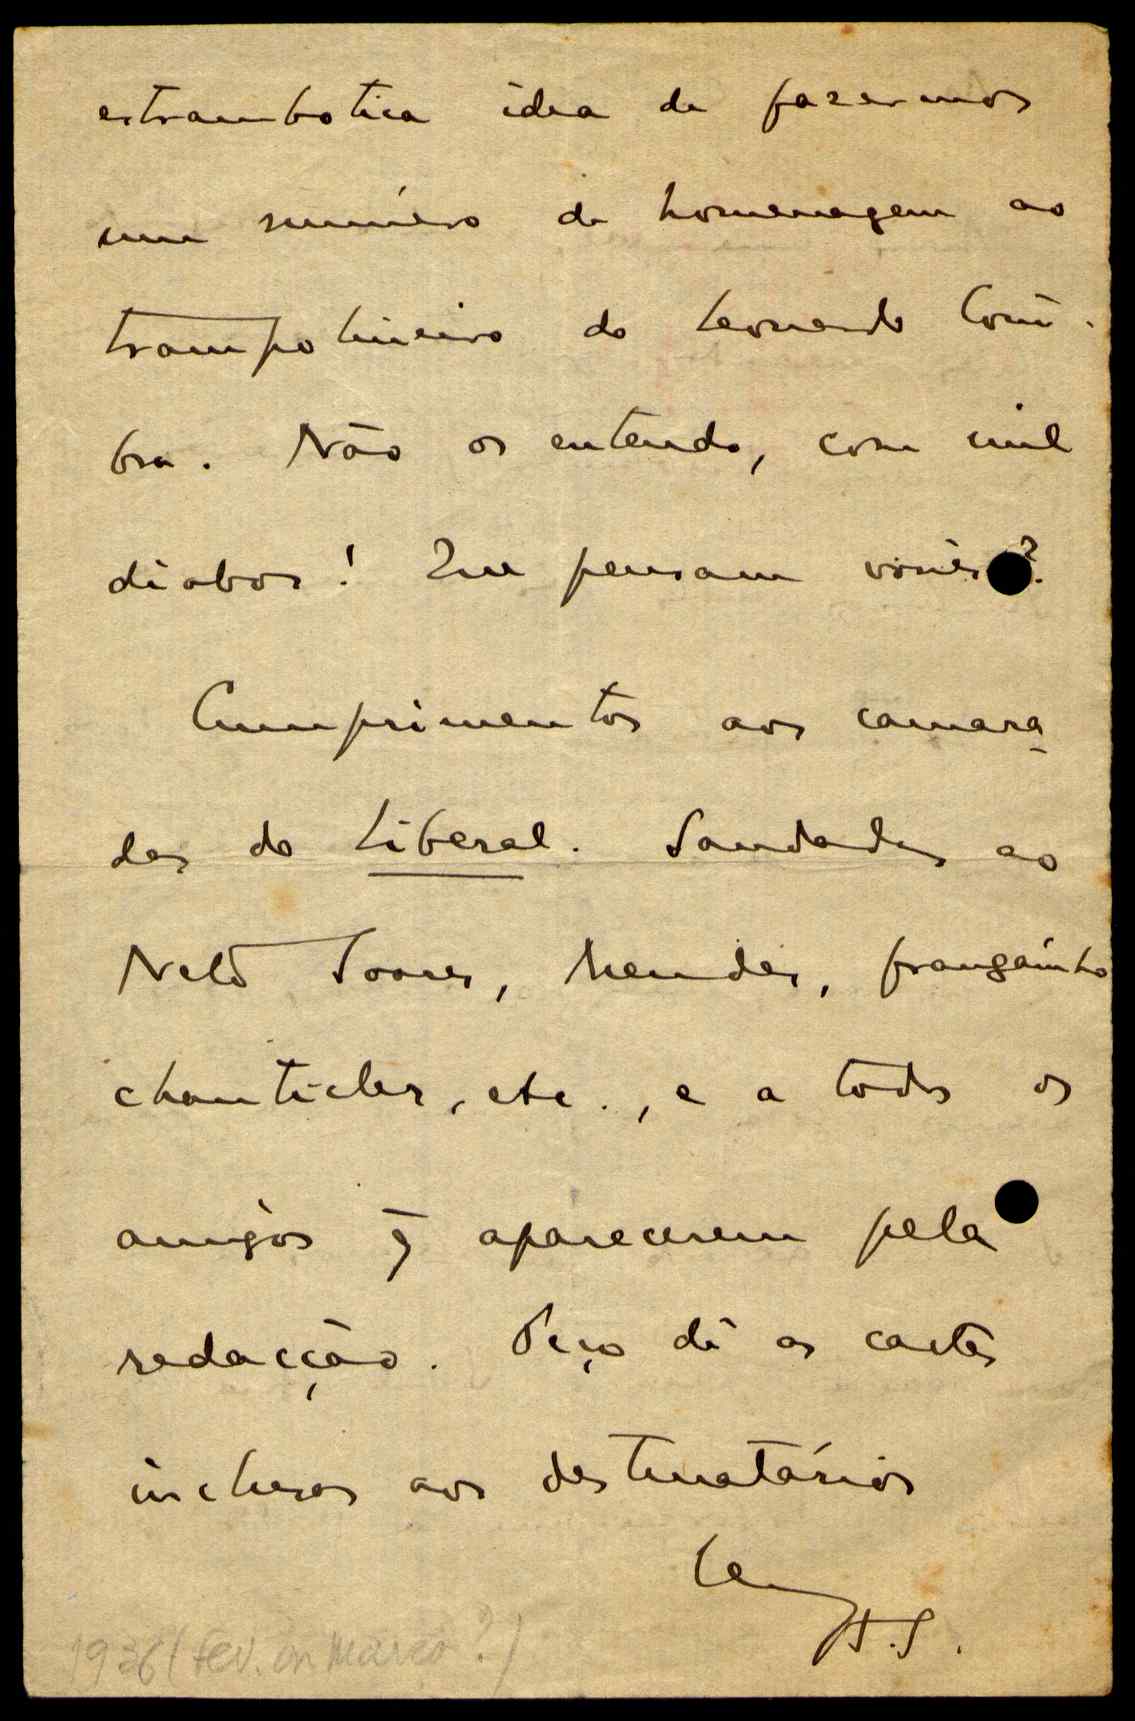 estrambotica idea de fazermos
um número de homenagem ao
trampolineiro do Leonardo Coim-
bra. Não os entendo, com mil
diabos! Que pensam vocês?
Cumprimentos aos camara-
das do Liberal. Saudades ao
Neto Soares, Mendes, frangainho
chanticler, etc., e a todos os
amigos q̃ aparecerem pela
redacção. Peço dê as cartas
inclusas aos destinatários
1936 (fev. ou Março?)